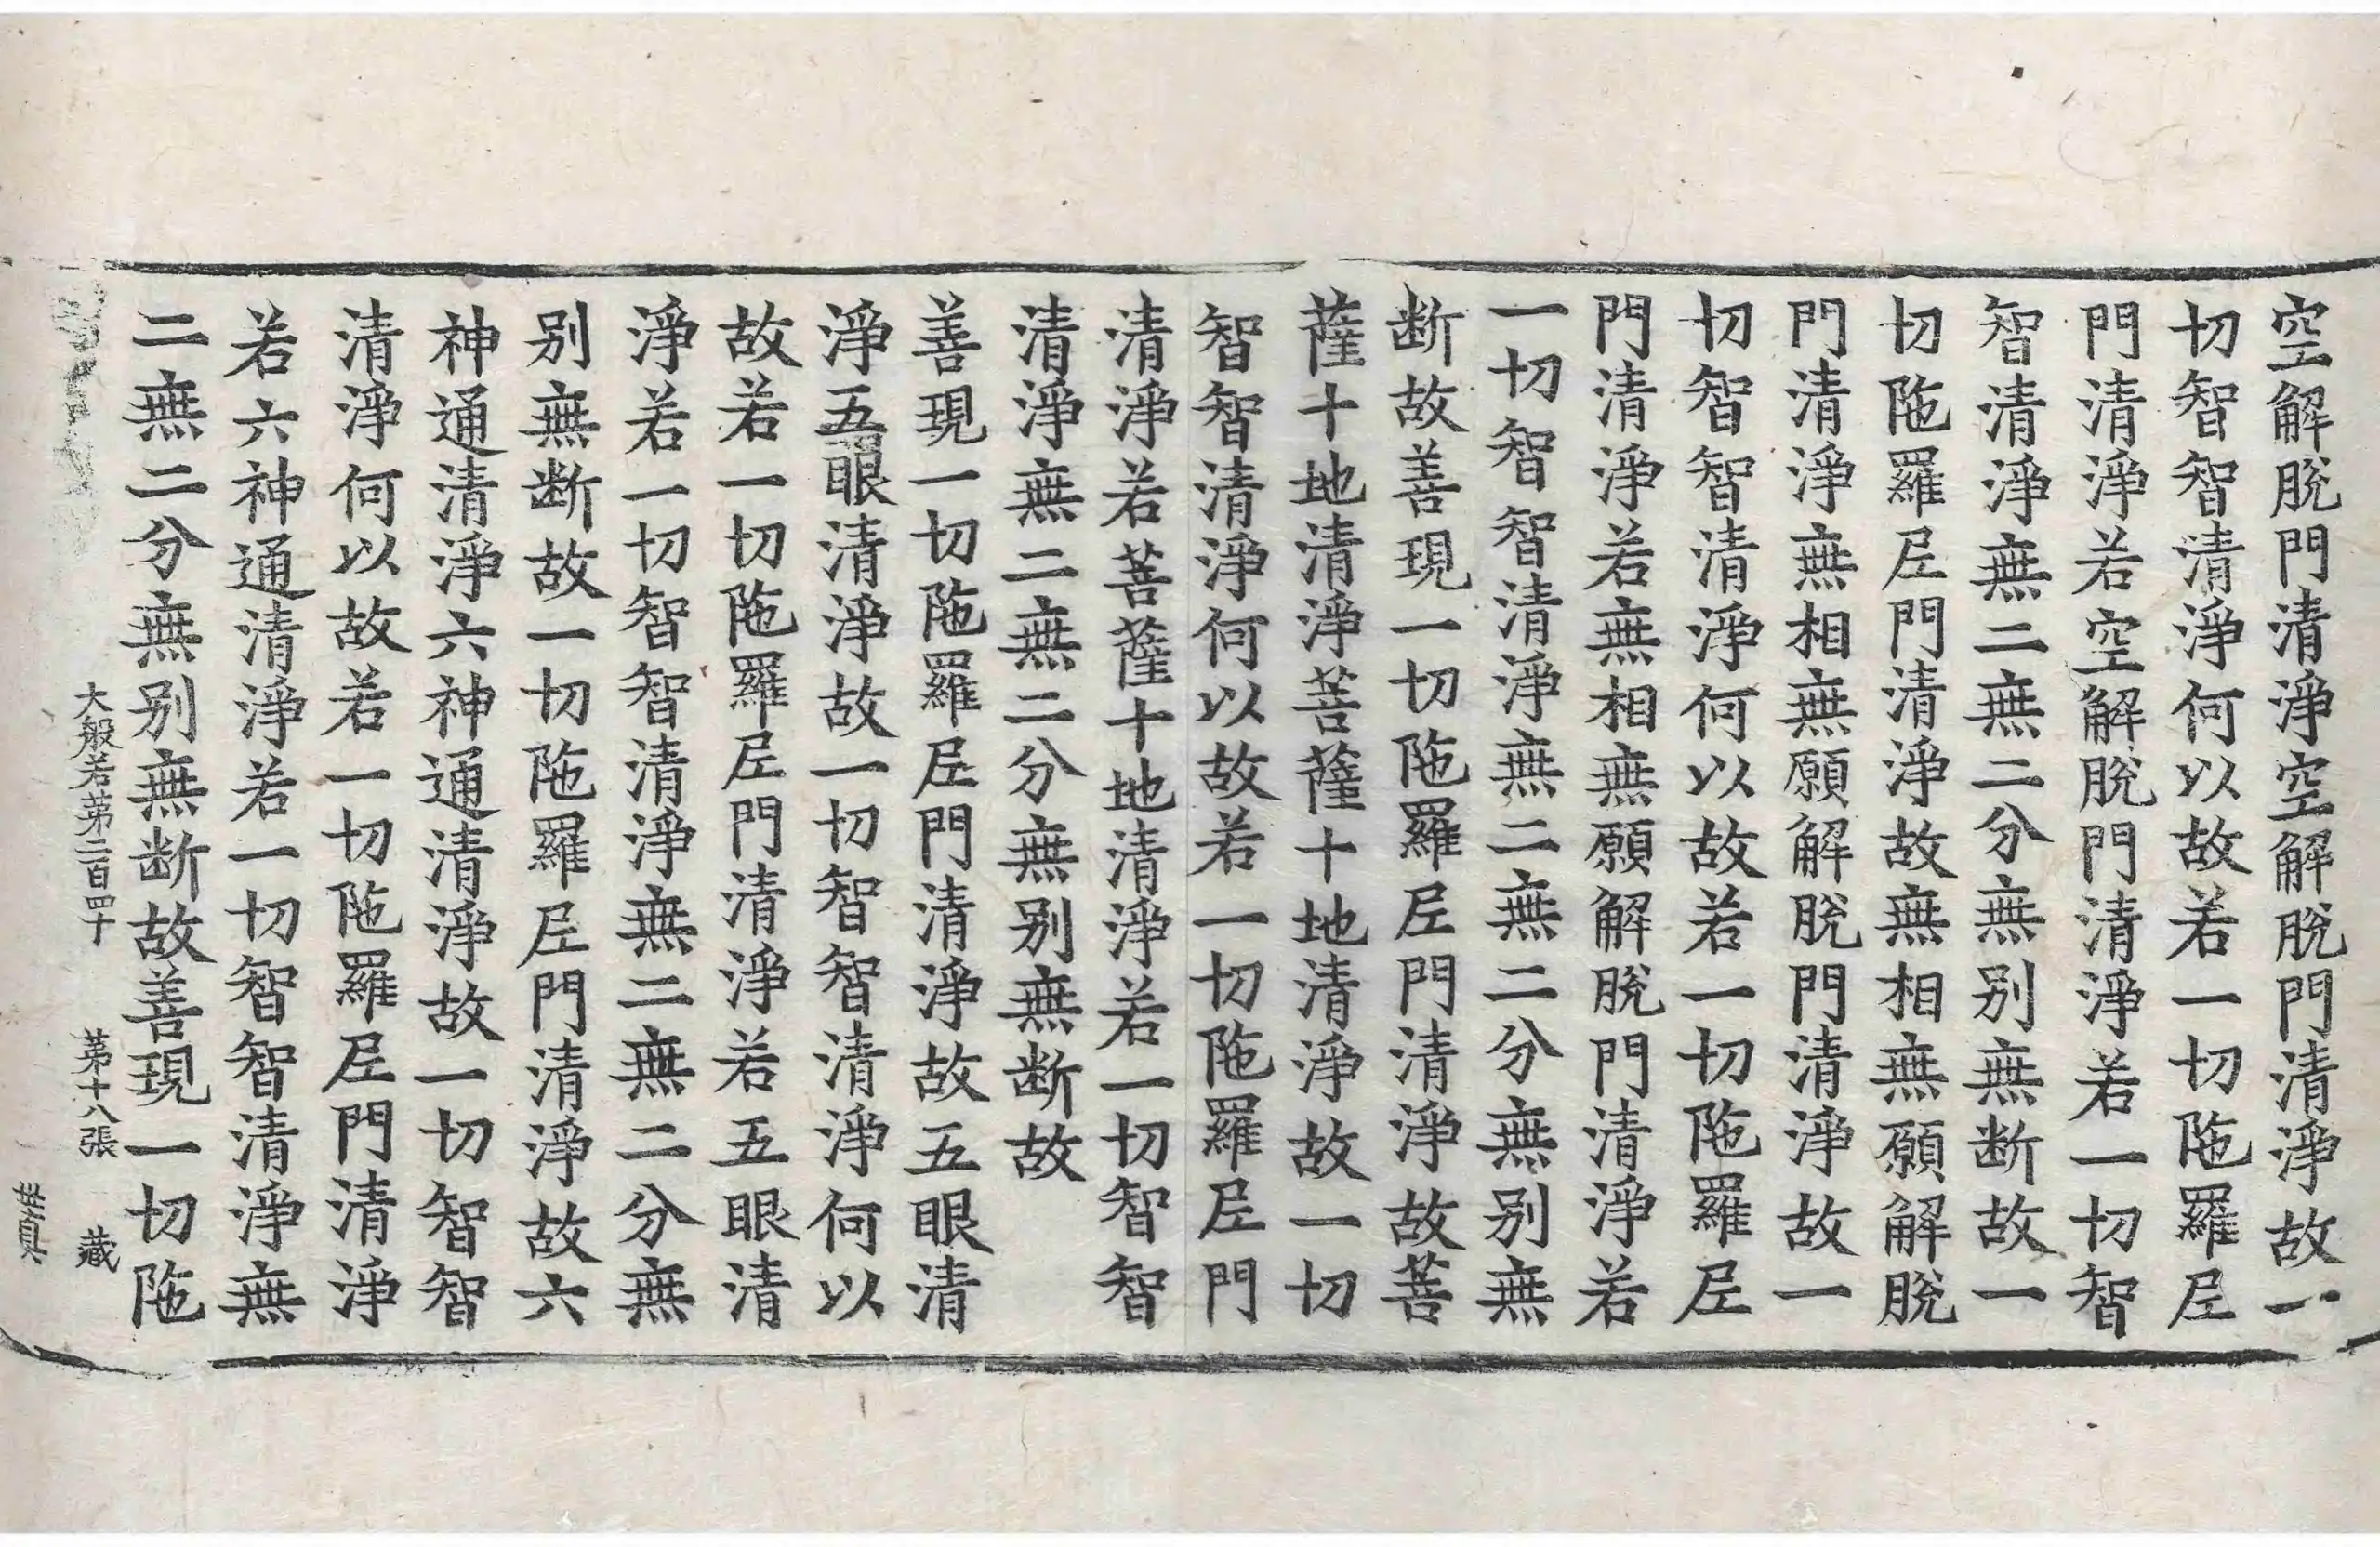 空解脫門清淨空解脫門清淨故一
切智智清淨何以故若一切陁羅𡰱
門清淨若空解脫門清淨若一切智
智清淨無二無二分無別無斷故一
切陁羅𡰱門清淨故無相無願解脫
門清淨無相無願解脫門清淨故一
切智智清淨何以故若一切陁羅𡰱
門清淨若無相無願解脫門清淨若
一切智智清淨無二無二分無別無
断故善現一切陁羅𡰱門清淨故菩
薩十地清淨菩薩十地清淨故一切
智智清淨何以故若一切陁羅𡰱門
清淨若菩薩十地清淨若一切智智
清淨無二無二分無别無断故
善現一切陁羅𡰱門清淨故五眼清
淨五眼清淨故一切智智清淨何以
故若一切陁羅𡰱門清淨若五眼清
淨若一切智智清淨無二無二分無
别無断故一切陁羅𡰱門清淨故六
神通清淨六神通清淨故一切智智
清淨何以故若一切陁羅𡰱門清淨
若六神通清淨若一切智智清淨無
二無二分無别無断故善現一切陁
大般若第二百四十 第十八張 藏